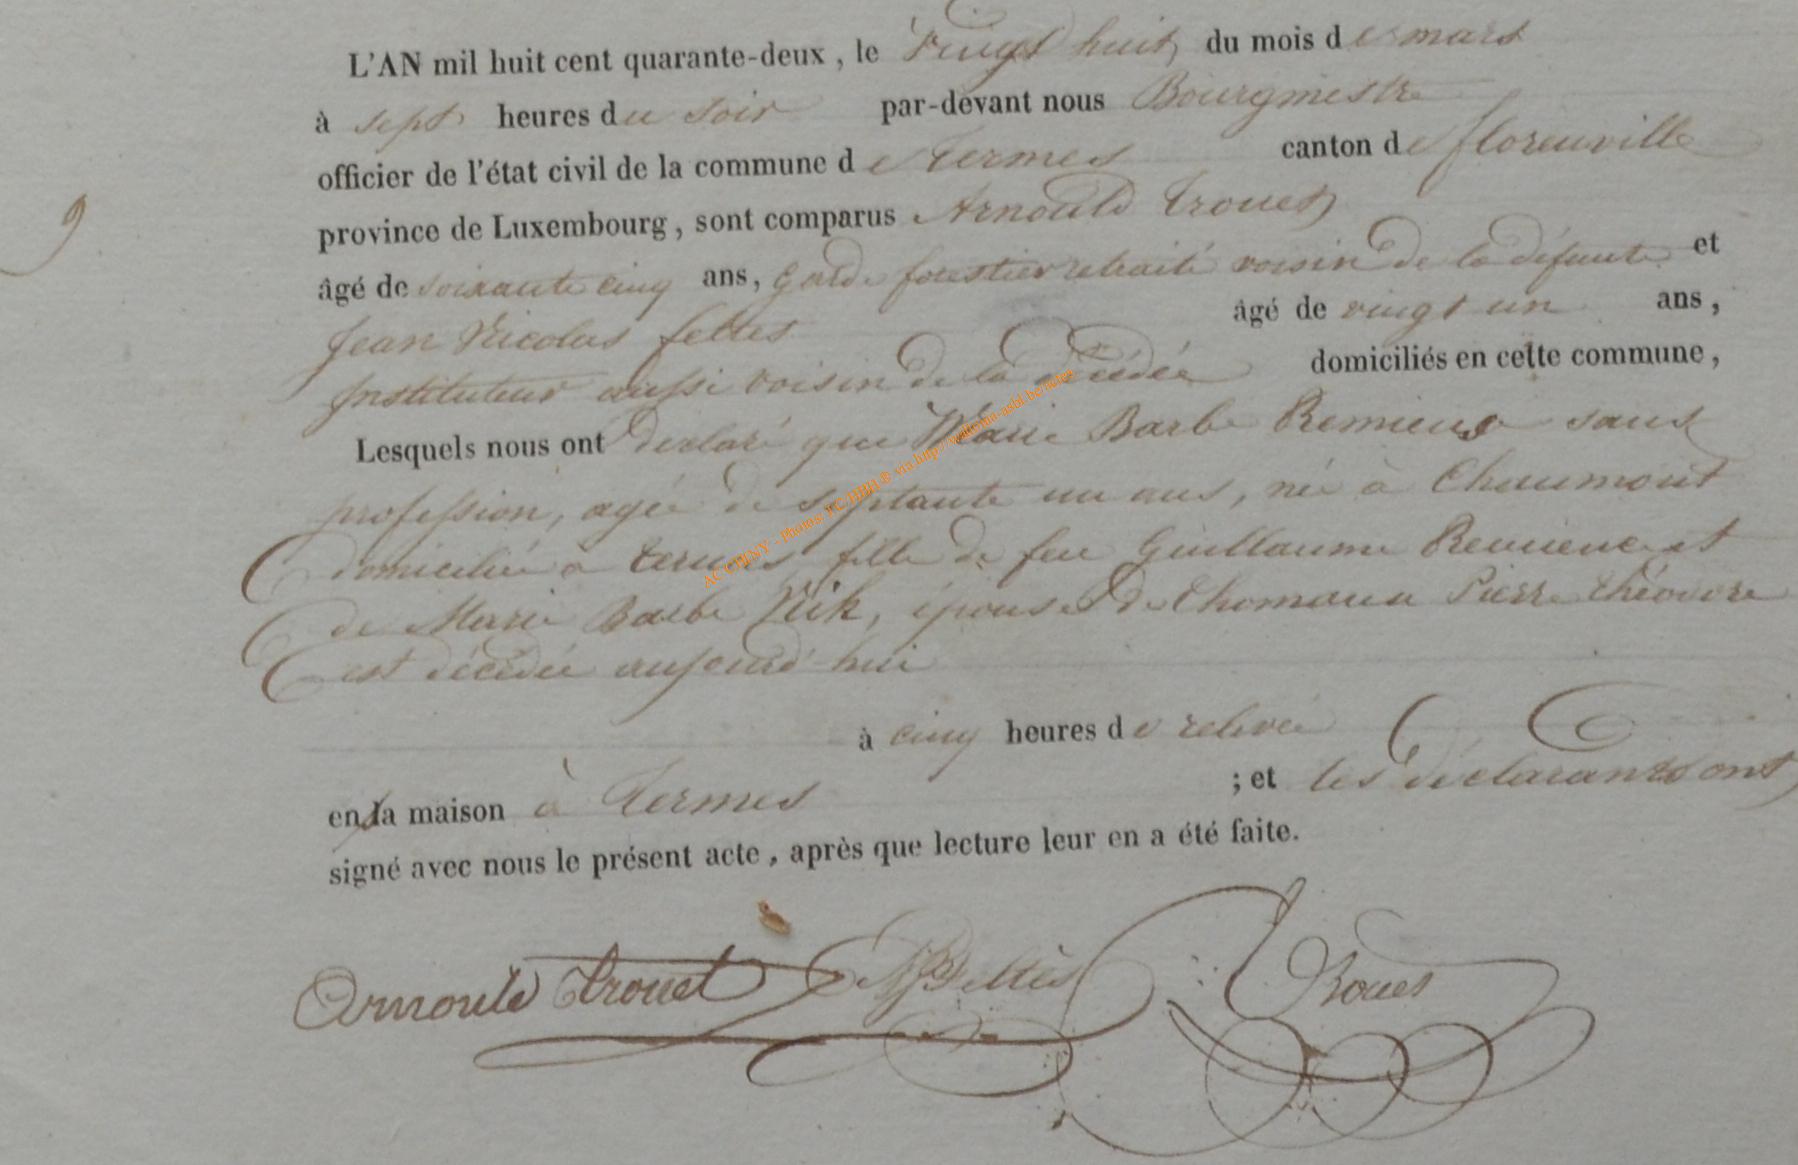 L'AN mil huit cent quarante-deux, le Vingt huit du mois de mars
à sept heures du soir par-devant nous Bourgmestre
officier de l'état civil de la commune de Termes canton de florenville
province de Luxembourg, sont comparus Arnould Trouet
9
âgé de soixante cinq ans, garde forestier retraité voisin de la défunte et
Jean Nicolas feltes âgé de vingt un ans,
Instituteur aussi voisin de la décédée domiciliés en cette commune,
Lesquels nous ont declaré que Marie Barbe sans
profession, agée de septante un ans, née à Chaumont
domiciliée à termes fille de feu Guillaume et
de Marie Barbe épouse de Thomaua Pierre théodore
est décédée aujourd'hui
à cinq heures de relevée
en la maison à Termes ; et les déclarants ont
signé avec nous le présent acte, après que lecture leur en a été faite.
Arnould trouet
AC CHINY - Photos: FC-HBH® via http://wallonia-asbl.be/actes